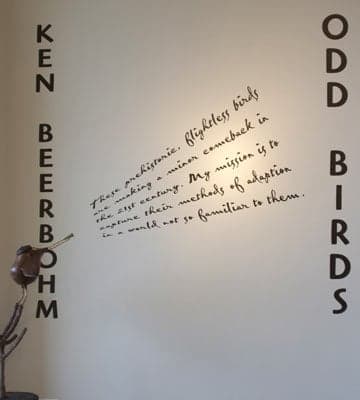 KEN BEERBOHM
These prehistoric, flightless birds
are making a minor comeback in
the 21st century. My mission is to
capture their methods of adaption
in a world not so familiar to them.
ODD BIRDS